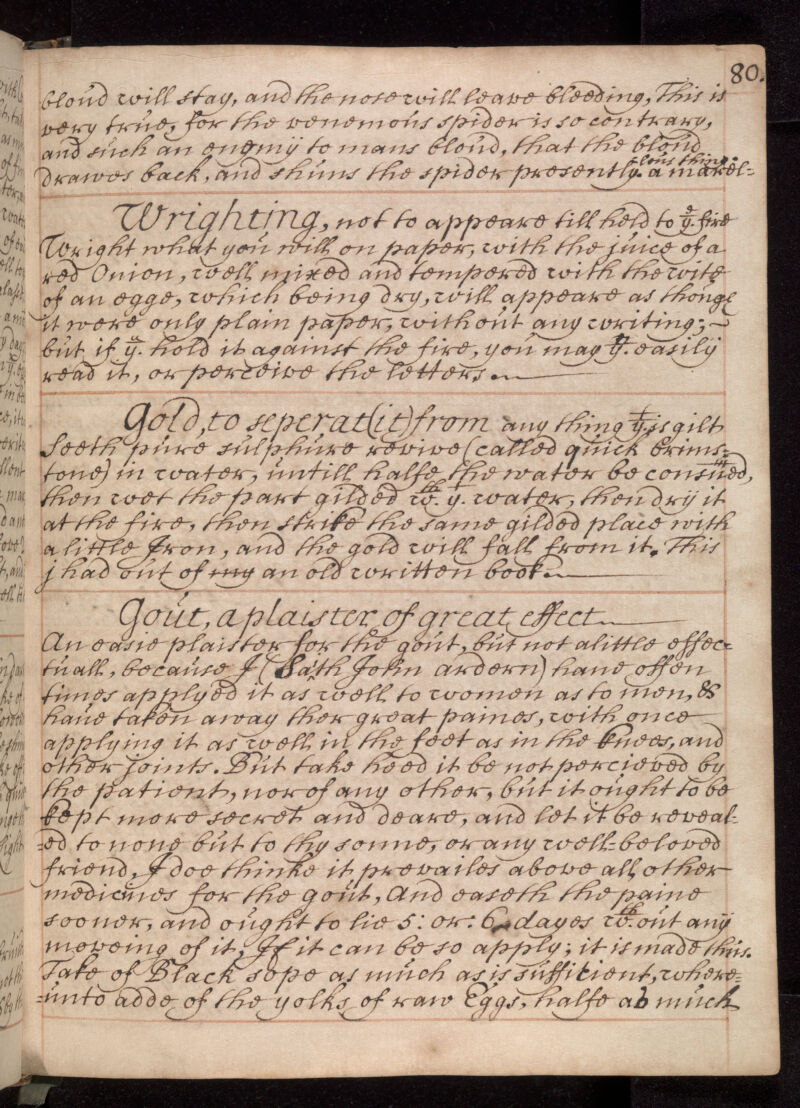 80.
bloud will stay, and the nose will leave bleeding, This is
very true, for the venemous spider is so contrary,
and such an enemy to mans bloud, that the bloud
drawes back, and shuns the spider presently. a marvel=
lous thing.
Wrighting, not to appeare till held to ye. fire
Wright what you will on paper, with the juice of a
red Onion, well mixed and tempered with the wite
of an egge, which being dry, will appeare as though
it were only plain paper, without any writing;
but if y. hold it against the fire, you may yn. easily
read it, or perceive the letters.
Gold, to seperat (it) from any thing yt. is gilt
Seeth pure sulphure revive (called quick brims=
tone) in water, untill halfe the water be consumed,
then wet the part gilded wth. y. water, then dry it
at the fire, then strike the same gilded place with
a little Iron, and the gold will fall from it. This
j had out of my an old written book.
Gout, a plaister of great effect
An easie plaister for the gout, but not a little effec=
tuall, because I (Saith John ardern) have offen
times applyed it as well to women as to men, &
have taken away ther great paines, with once
applying it as well in the feet as in the knees, and
other joints. But take heed it be not percieved by
the patient, nor of any other, but it ought to be
kept more secret and deare, and let it be reveal=
=ed to none but to thy sonne, or any well=beloved
friend, I doe thinke it prevailes above all other
medicines for the gout, And easeth the paine
sooner, and ought to lie 5: or: 6 dayes wth. out any
moveing of it, If it can be so apply; it is made thus.
Take of Black sope as much as is sufficient, where=
=unto adde of the yolks of raw Eggs, halfe as much